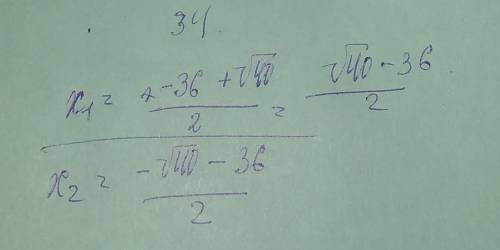 34.
x₁ = -36 + √40 / 2 = √40 - 36 / 2
x₂ = -√40 - 36 / 2